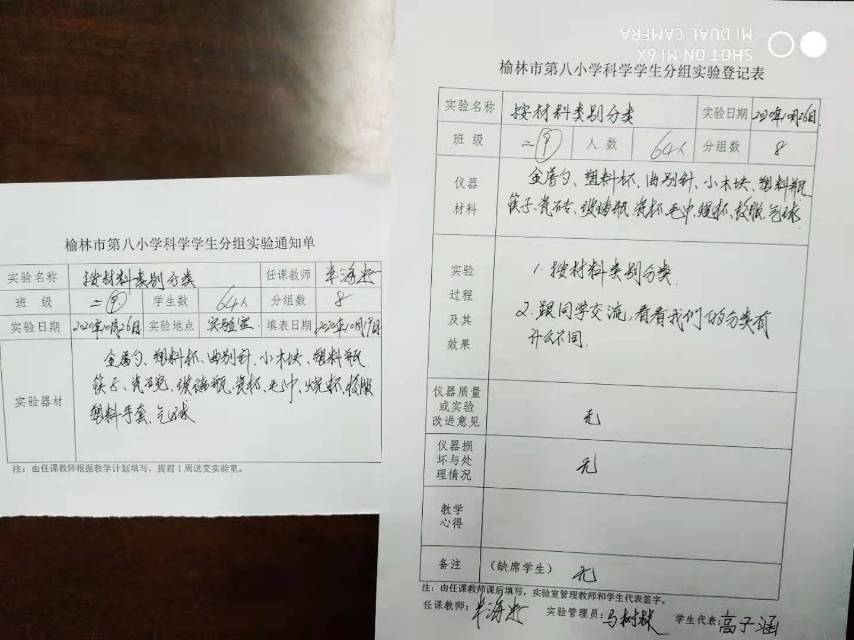 SHOT ON MI 6X
MI DUAL CAMERA
榆林市第八小学科学学生分组实验通知单
实验名称 按材料类别分类 任课教师
班 级 二(9) 学生数 64人 分组数 8
实验日期 2020年10月26日 实验地点 实验室 填表日期 2020年10月19日
实验器材
金属勺、塑料杯、曲别针、小木块、塑料瓶
筷子、瓷碗、玻璃瓶、瓷杯、毛巾、烧杯、校服
塑料手套、气球
注：由任课教师根据教学计划填写，提前1周送交实验室。
榆林市第八小学科学学生分组实验登记表
实验名称 按材料类别分类 实验日期 2020年10月26日
班 级 二(9) 人 数 64人 分组数 8
仪器
材料
金属勺、塑料杯、曲别针、小木块、塑料瓶
筷子、瓷砖、玻璃瓶、瓷杯、毛巾、烧杯、校服、气球
实验
过程
及其
效果
1. 按材料类别分类
2. 跟同学交流，看看我们的分类有
什么不同.
仪器质量
或实验
改进意见
无
仪器损
坏与处
理情况
无
教学
心得
备注 (缺席学生) 无
注：由任课教师课后填写，实验室管理教师和学生代表签字。
任课教师: 实验管理员: 马树林 学生代表: 高子涵